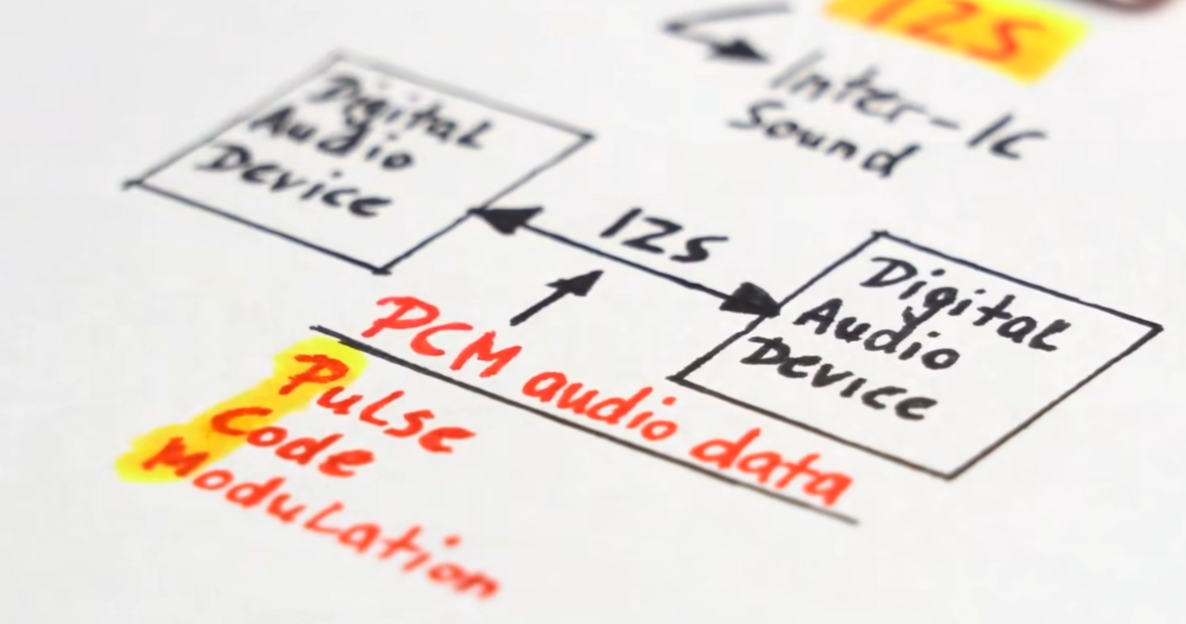 I2S
Inter-IC
Sound
Digital
Audio
Device
I2S
Digital
Audio
Device
PCM audio data
Pulse
Code
Modulation